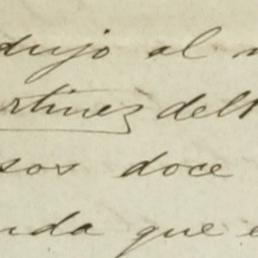 dujo al
artinez del
sos doce
nda que e